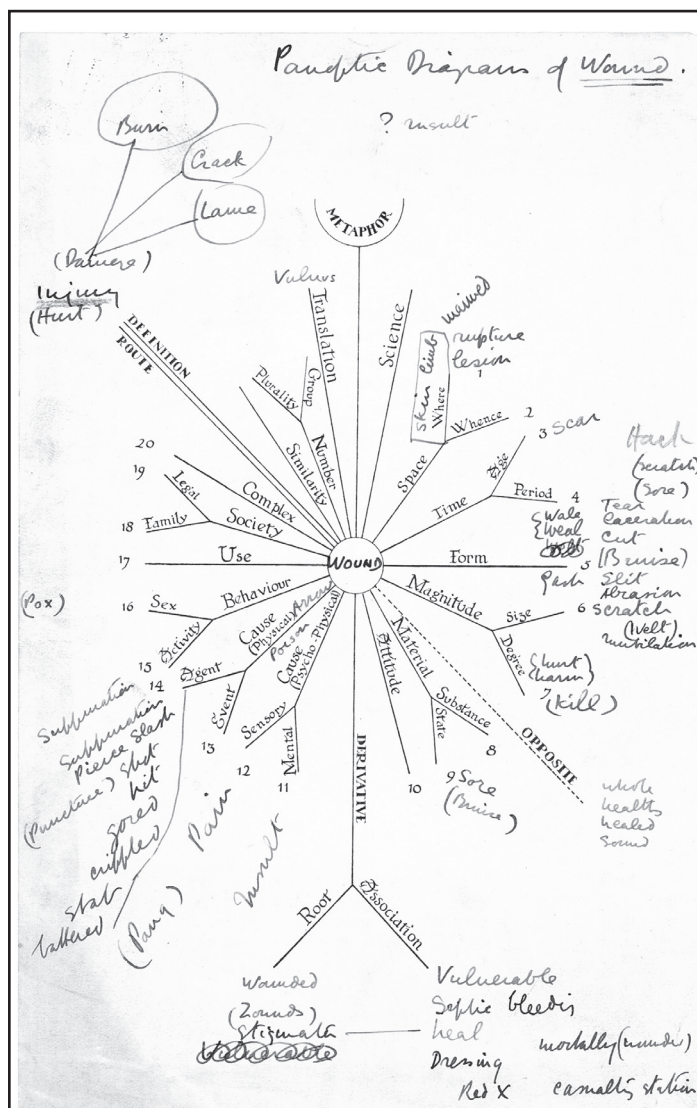 Panoptic Diagram of Wound.
? insult
Burn
Crack
Lame
(Damage)
Injury
(Hurt)
METAPHOR
Vulnus
Translation
Science
maimed
rupture
lesion
1
skin limb
Where
Whence
2
Space
DEFINITION
ROUTE
Plurality
Group
Number
Similarity
3 Scar
Age
Time
Period
4
Hack
(scratch)
(Sore)
Tear
laceration
Cut
(Bruise)
Slit
Abrasion
Scratch
(Welt)
mutilation
Wale
Weal
Welt
Gash
20
Complex
19
Legal
Society
18
Family
17
Use
WOUND
Form
5
Magnitude
Size
6
Degree
7
(hurt
(harm
(Kill)
(Pox)
16
Sex
Behaviour
15
Activity
14
Agent
Cause
(Physical)
Arrow
Poison
Event
13
Cause
(Psycho-Physical)
Sensory
12
Mental
11
Attitude
10
Material
Substance
8
State
9 Sore
(Bruise)
OPPOSITE
whole
healthy
healed
Sound
Suppuration
Suppuration
Pierce slash
(Puncture) shot
hit
gored
crippled
stab
battered
Pain
(Pang)
Insult
DERIVATIVE
Root
Association
Wounded
(Zounds)
Stigmata
Vulnerable
Vulnerable
Septic bleeding
heal
Dressing
mortally (wounded)
Red X
casualty station